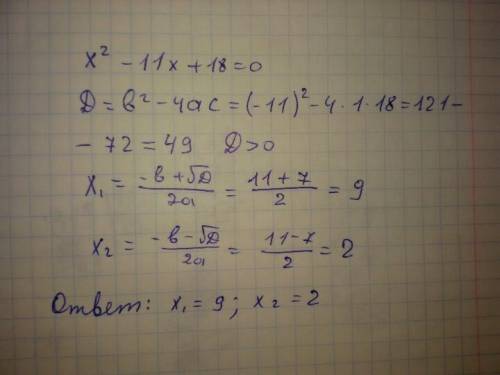 x² - 11x + 18 = 0
D = в² - 4ac = (-11)² - 4 · 1 · 18 = 121 -
- 72 = 49 D > 0
x₁ = (-в + √D)/2a = (11 + 7)/2 = 9
x₂ = (-в - √D)/2a = (11 - 7)/2 = 2
Ответ: x₁ = 9; x₂ = 2